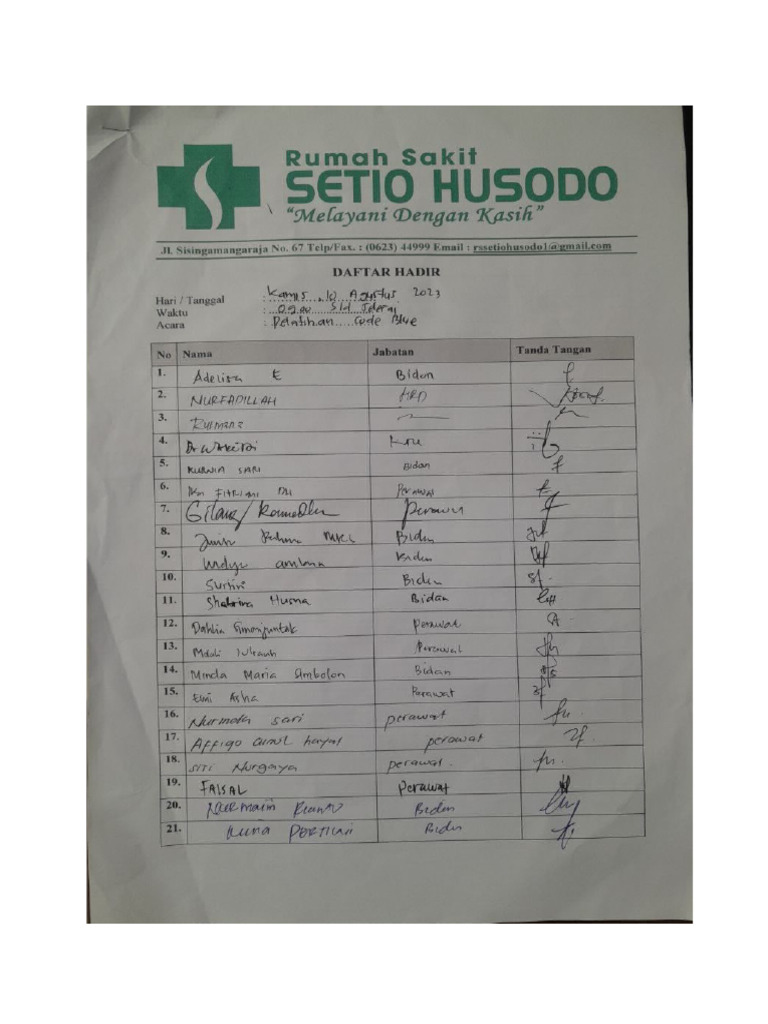 Rumah Sakit
SETIO HUSODO
"Melayani Dengan Kasih"
Jl. Sisingamangaraja No. 67 Telp/Fax. : (0623) 44999 Email : rssetiohusodo1@gmail.com
DAFTAR HADIR
Hari / Tanggal : Kamis, 10 Agustus 2023
Waktu : 09.00 s/d selesai
Acara : Pelatihan Code Blue
No Nama Jabatan Tanda Tangan
1. Adelisa E Bidan
2. NURFADILLAH HRD
3. Rusmana
4.
5. KURNIA SARI Bidan
6. FITRIANI Perawat
7. Gilang Perawat
8. Bidan
9. Bidan
10. Bidan
11. Shabrina Husna Bidan
12. Dahlia Simonjuntak Perawat
13. Perawat
14. Minda Maria Simbolon Bidan
15. Elmi Asha Perawat
16. Nurmala Sari perawat
17. Affiqo perawat
18. SITI Nurgaya perawat.
19. FAISAL Perawat
20. Bidan
21. PERTIWI Bidan